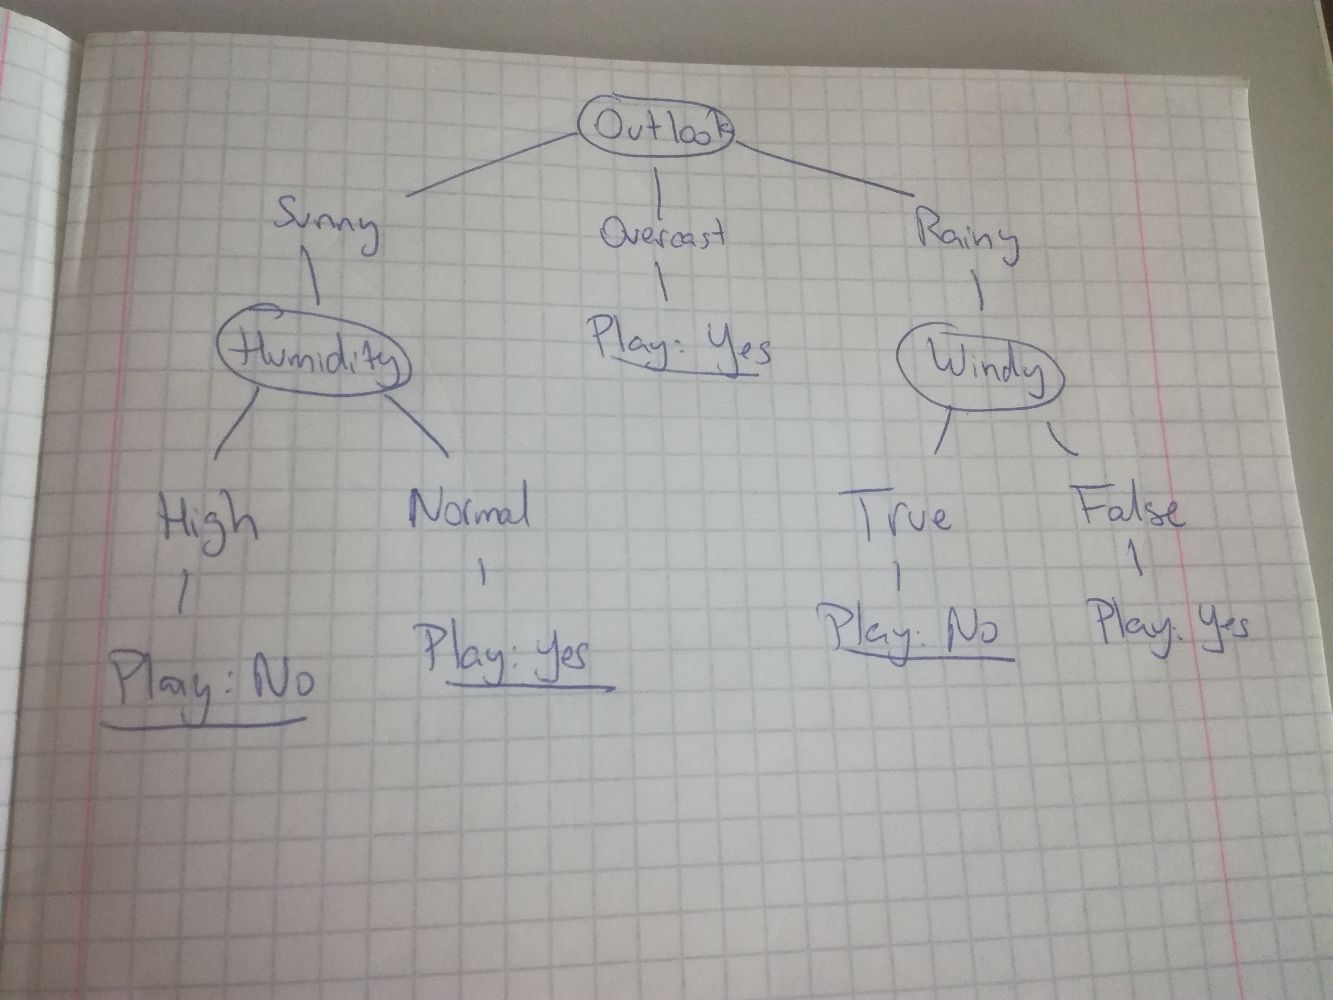 Outlook
Sunny Overcast Rainy
Humidity Play: Yes Windy
High Normal True False
Play: No Play: Yes Play: No Play: Yes